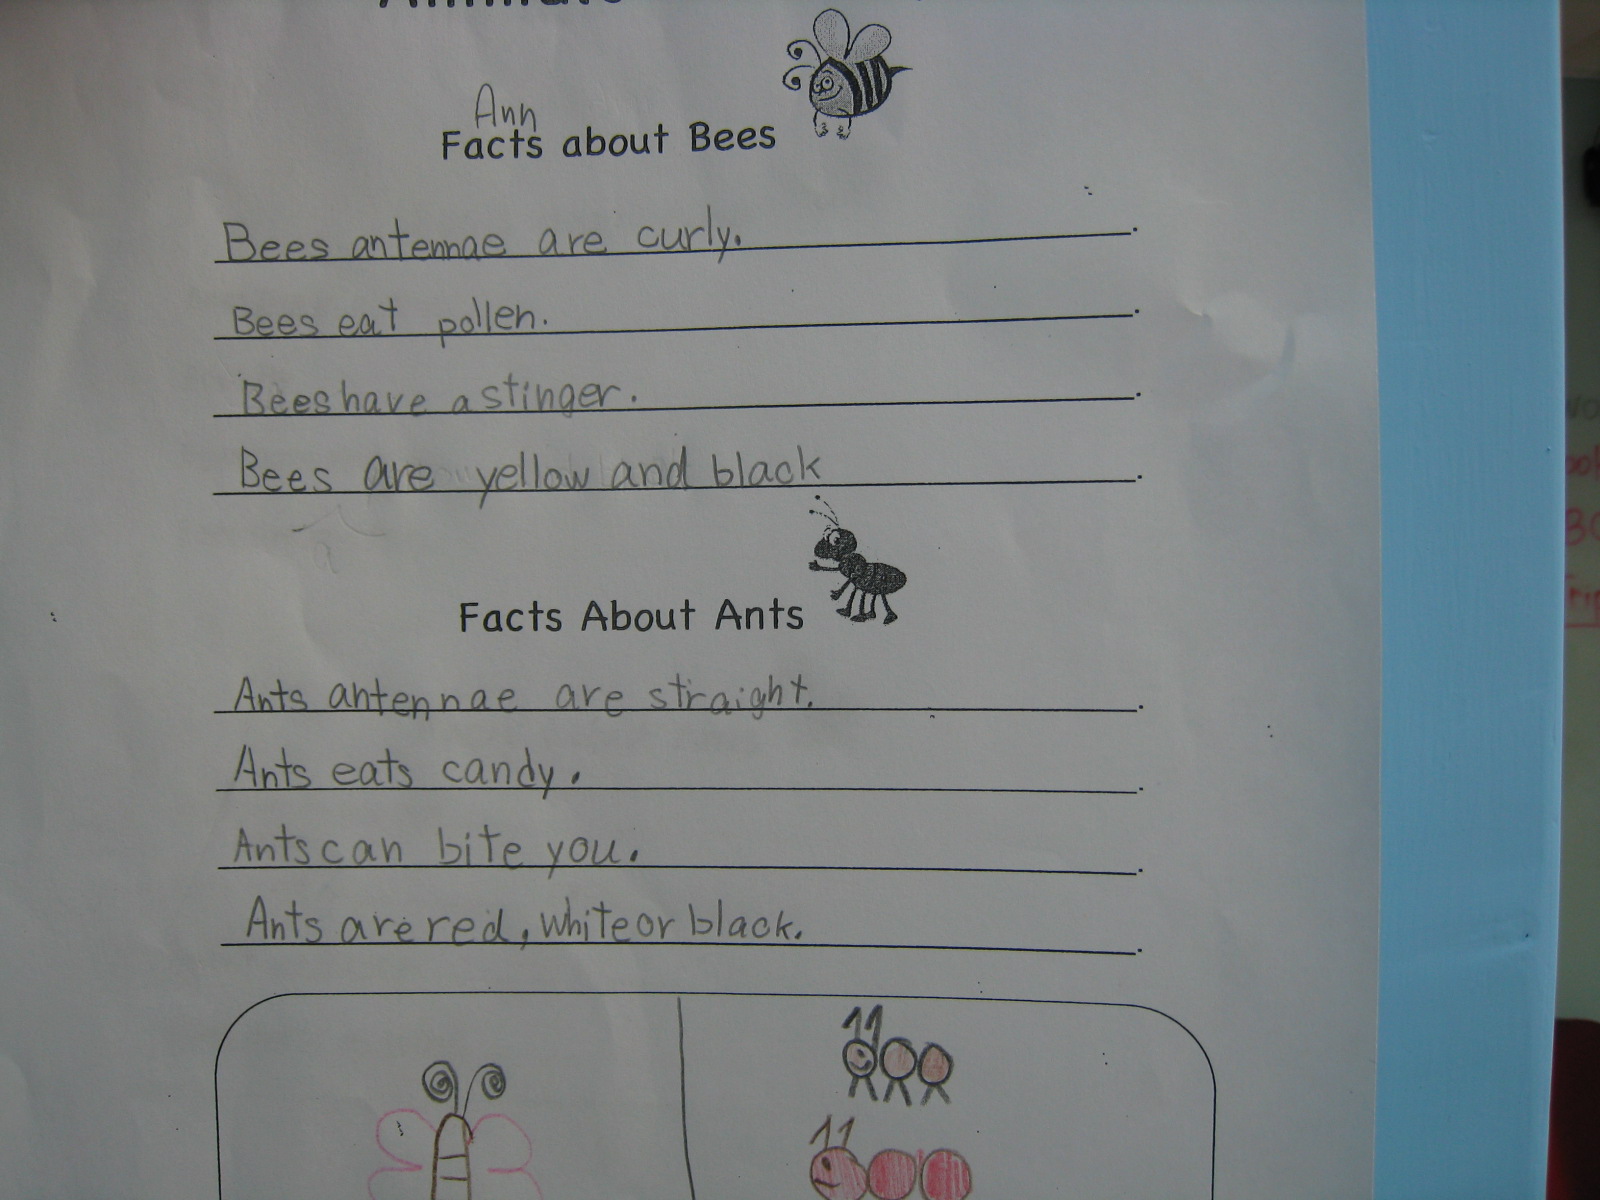 Ann
Facts about Bees
Bees antennae are curly.
Bees eat pollen.
Bees have a stinger.
Bees are yellow and black.
Facts About Ants
Ants antennae are straight.
Ants eats candy.
Ants can bite you.
Ants are red, white or black.